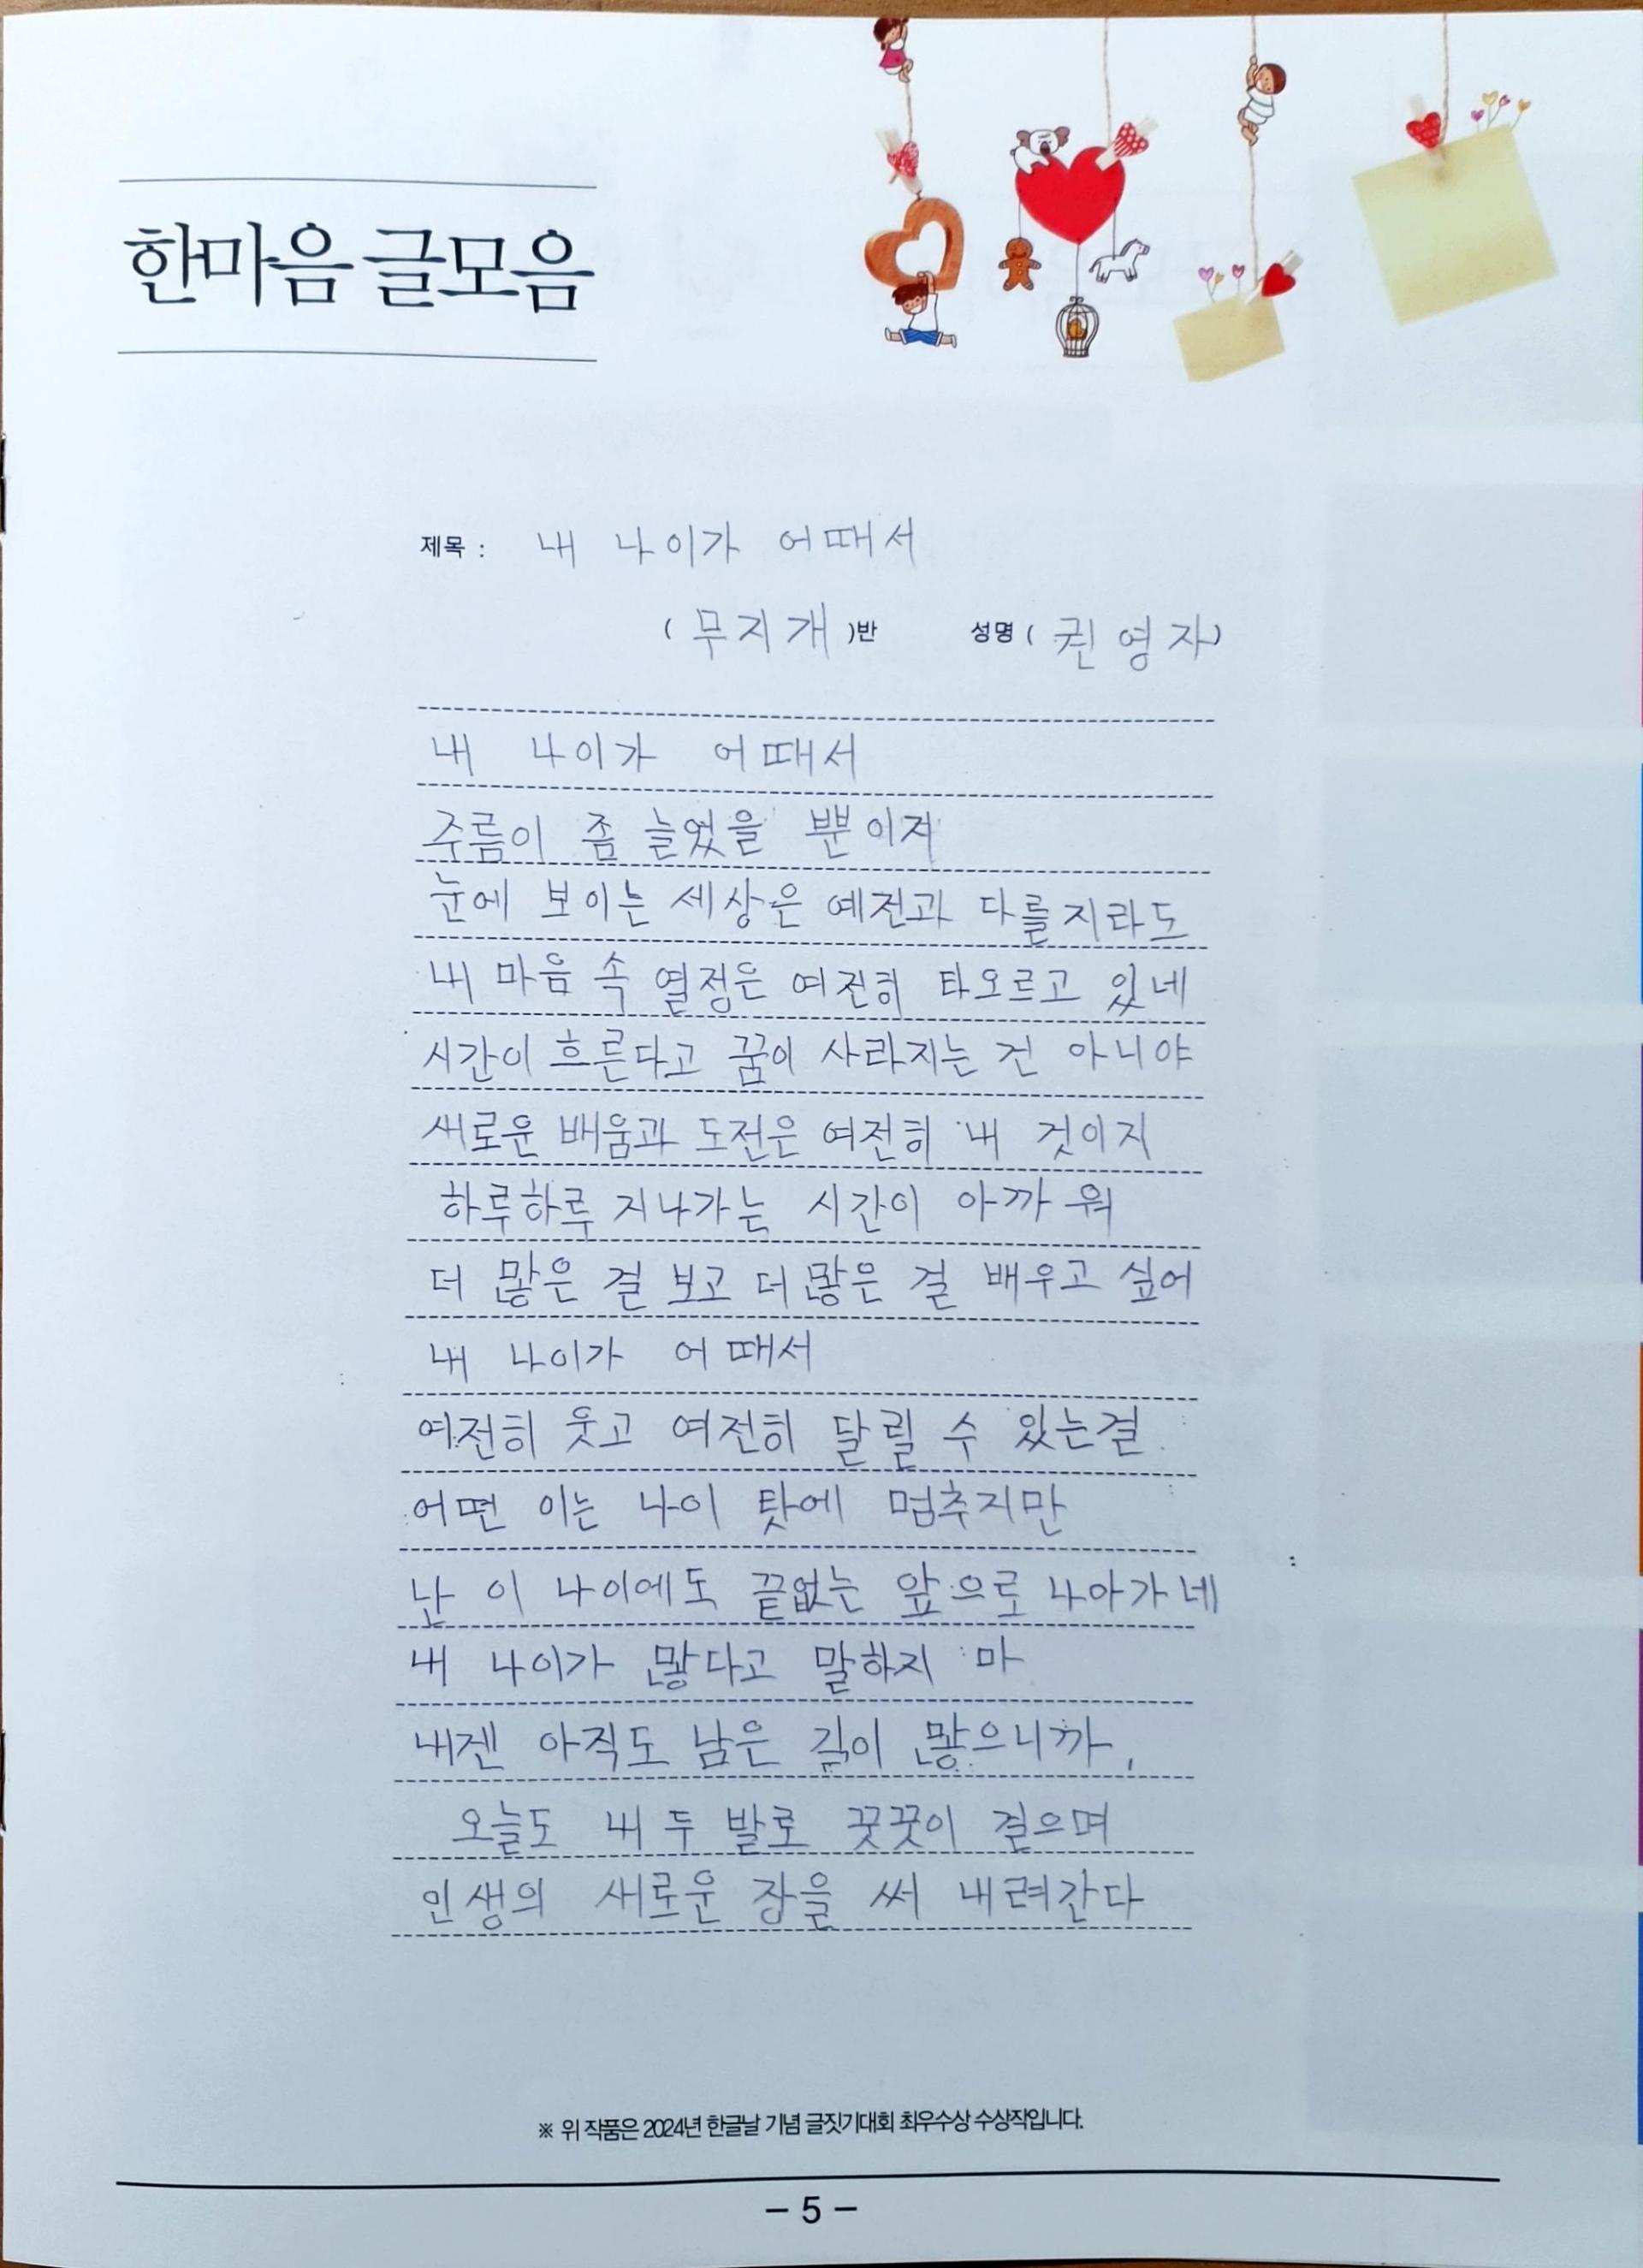 한마음 글모음
제목 : 내 나이가 어때서
( 무지개 )반 성명 ( 권영자 )
내 나이가 어때서
주름이 좀 늘었을 뿐이지
눈에 보이는 세상은 예전과 다를지라도
내 마음 속 열정은 여전히 타오르고 있네
시간이 흐른다고 꿈이 사라지는 건 아니야
새로운 배움과 도전은 여전히 내 것이지
하루하루 지나가는 시간이 아까워
더 많은 걸 보고 더 많은 걸 배우고 싶어
내 나이가 어때서
여전히 웃고 여전히 달릴 수 있는걸
어떤 이는 나이 탓에 멈추지만
난 이 나이에도 끝없는 앞으로 나아가네
내 나이가 많다고 말하지 마
내겐 아직도 남은 길이 많으니까,
오늘도 내 두 발로 꿋꿋이 걸으며
인생의 새로운 장을 써 내려간다
※ 위 작품은 2024년 한글날 기념 글짓기대회 최우수상 수상작입니다.
– 5 –